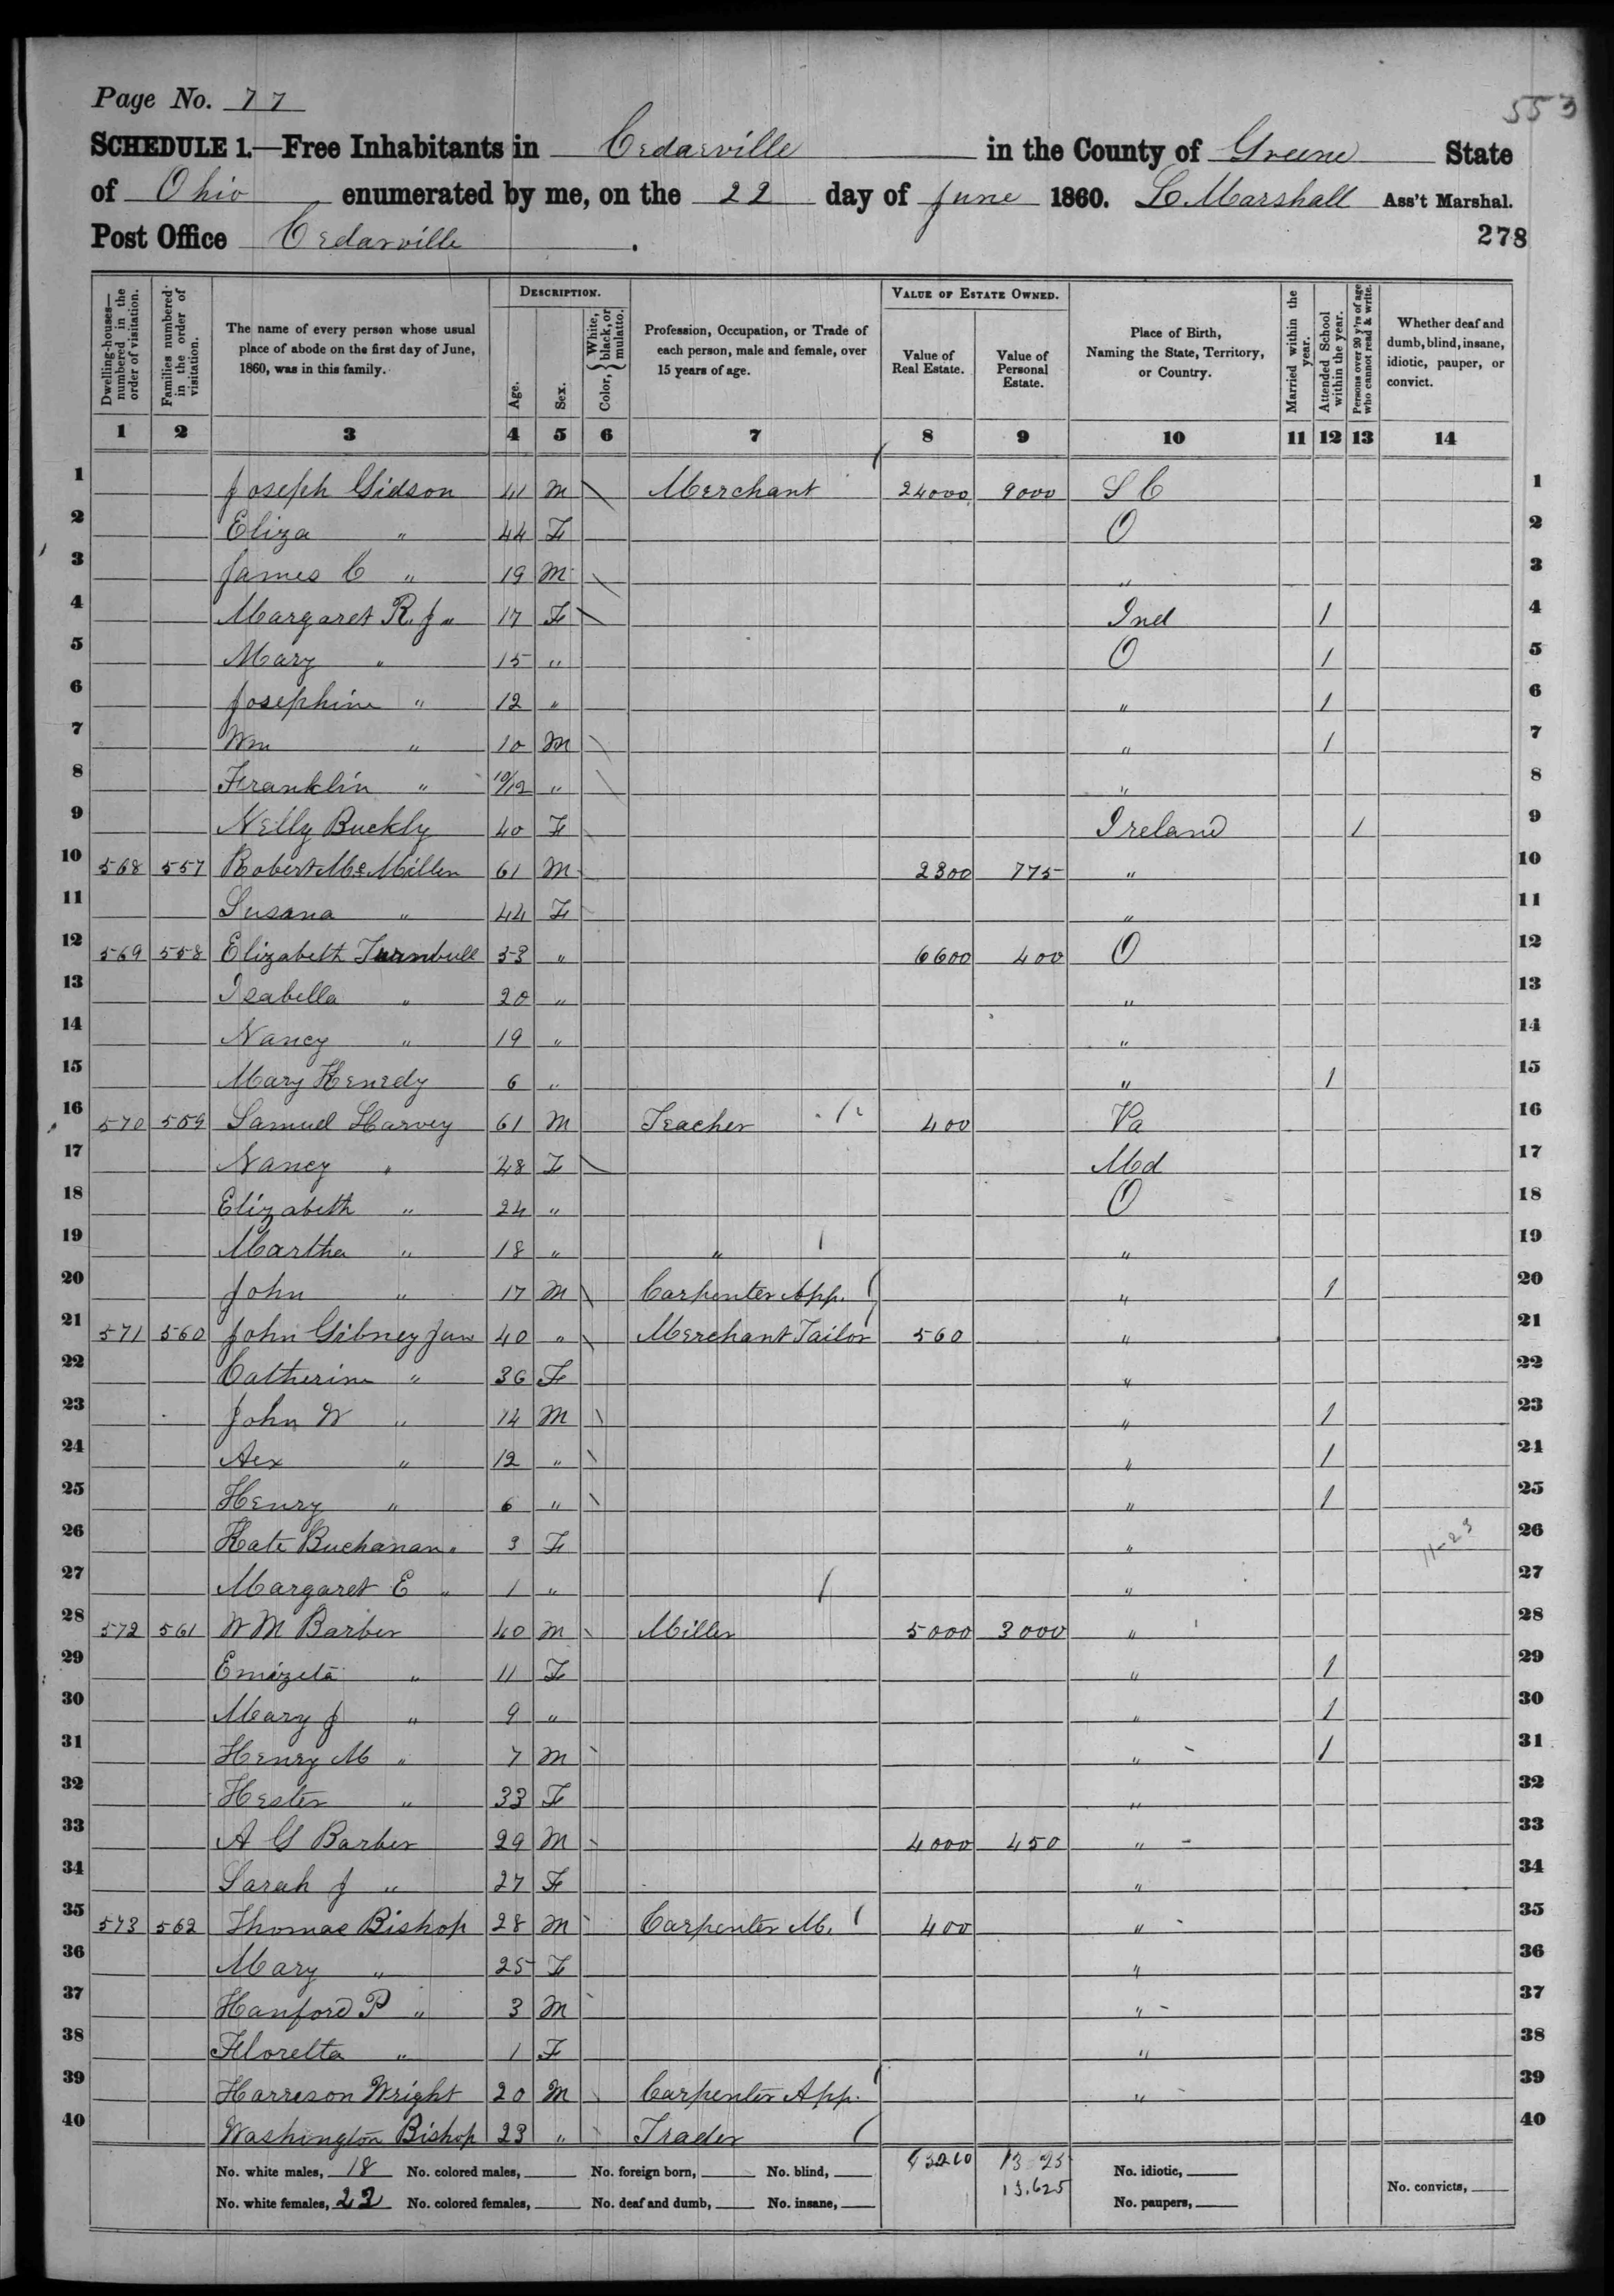 Page No. 77
553
SCHEDULE 1.—Free Inhabitants in Cedarville in the County of Greene State
of Ohio enumerated by me, on the 22 day of June 1860. L Marshall Ass't Marshal.
Post Office Cedarville . 278
Dwelling-houses—numbered in the order of visitation.
Families numbered in the order of visitation.
The name of every person whose usual place of abode on the first day of June, 1860, was in this family.
DESCRIPTION.
Age.
Sex.
Color, { White, black, or mulatto.
Profession, Occupation, or Trade of each person, male and female, over 15 years of age.
VALUE OF ESTATE OWNED.
Value of Real Estate.
Value of Personal Estate.
Place of Birth, Naming the State, Territory, or Country.
Married within the year.
Attended School within the year.
Persons over 20 y'rs of age who cannot read & write.
Whether deaf and dumb, blind, insane, idiotic, pauper, or convict.
1 2 3 4 5 6 7 8 9 10 11 12 13 14
1 Joseph Gidson 41 M \ Merchant 24000 9000 S C 1
2 Eliza " 44 F O 2
3 James C " 19 M \ " 3
4 Margaret R. J " 17 F \ Ind 1 4
5 Mary " 15 " O 1 5
6 Josephine " 12 " " 1 6
7 Wm " 10 M \ " 1 7
8 Franklin " 10/12 " \ " 8
9 Nelly Buckly 40 F Ireland 1 9
10 568 557 Robert McMillen 61 M 2300 775 " 10
11 Susana " 44 F " 11
12 569 558 Elizabeth Turnbull 53 " 6600 400 O 12
13 Isabella " 20 " " 13
14 Nancy " 19 " " 14
15 Mary Kenedy 6 " " 1 15
16 570 559 Samuel Harvey 61 M Teacher 400 Va 16
17 Nancy " 48 F \ Md 17
18 Elizabeth " 24 " O 18
19 Martha " 18 " " " 19
20 John " 17 M \ Carpenter App. " 1 20
21 571 560 John Gibney Jun 40 " \ Merchant Tailor 560 " 21
22 Catherine " 36 F " 22
23 John W " 14 M \ " 1 23
24 Aex " 12 " \ " 1 24
25 Henry " 6 " \ " 1 25
26 Kate Buchanan " 3 F " 11-23 26
27 Margaret E " 1 " " 27
28 572 561 W M Barber 40 M \ Miller 5000 3000 " 28
29 Emizeta " 11 F " 1 29
30 Mary J " 9 " " 1 30
31 Henry M " 7 M \ " 1 31
32 Hester " 33 F " 32
33 A G Barber 29 M \ 4000 450 " 33
34 Sarah J " 27 F " 34
35 573 562 Thomas Bishop 28 M \ Carpenter M. 400 " 35
36 Mary " 25 F " 36
37 Hanford P " 3 M \ " 37
38 Floretta " 1 F " 38
39 Harreson Wright 20 M \ Carpenter App. " 39
40 Washington Bishop 23 " \ Trader 40
No. white males, 18 No. colored males, No. foreign born, No. blind, 43260 No. idiotic,
No. white females, 22 No. colored females, No. deaf and dumb, No. insane, 13.625 No. paupers, No. convicts,